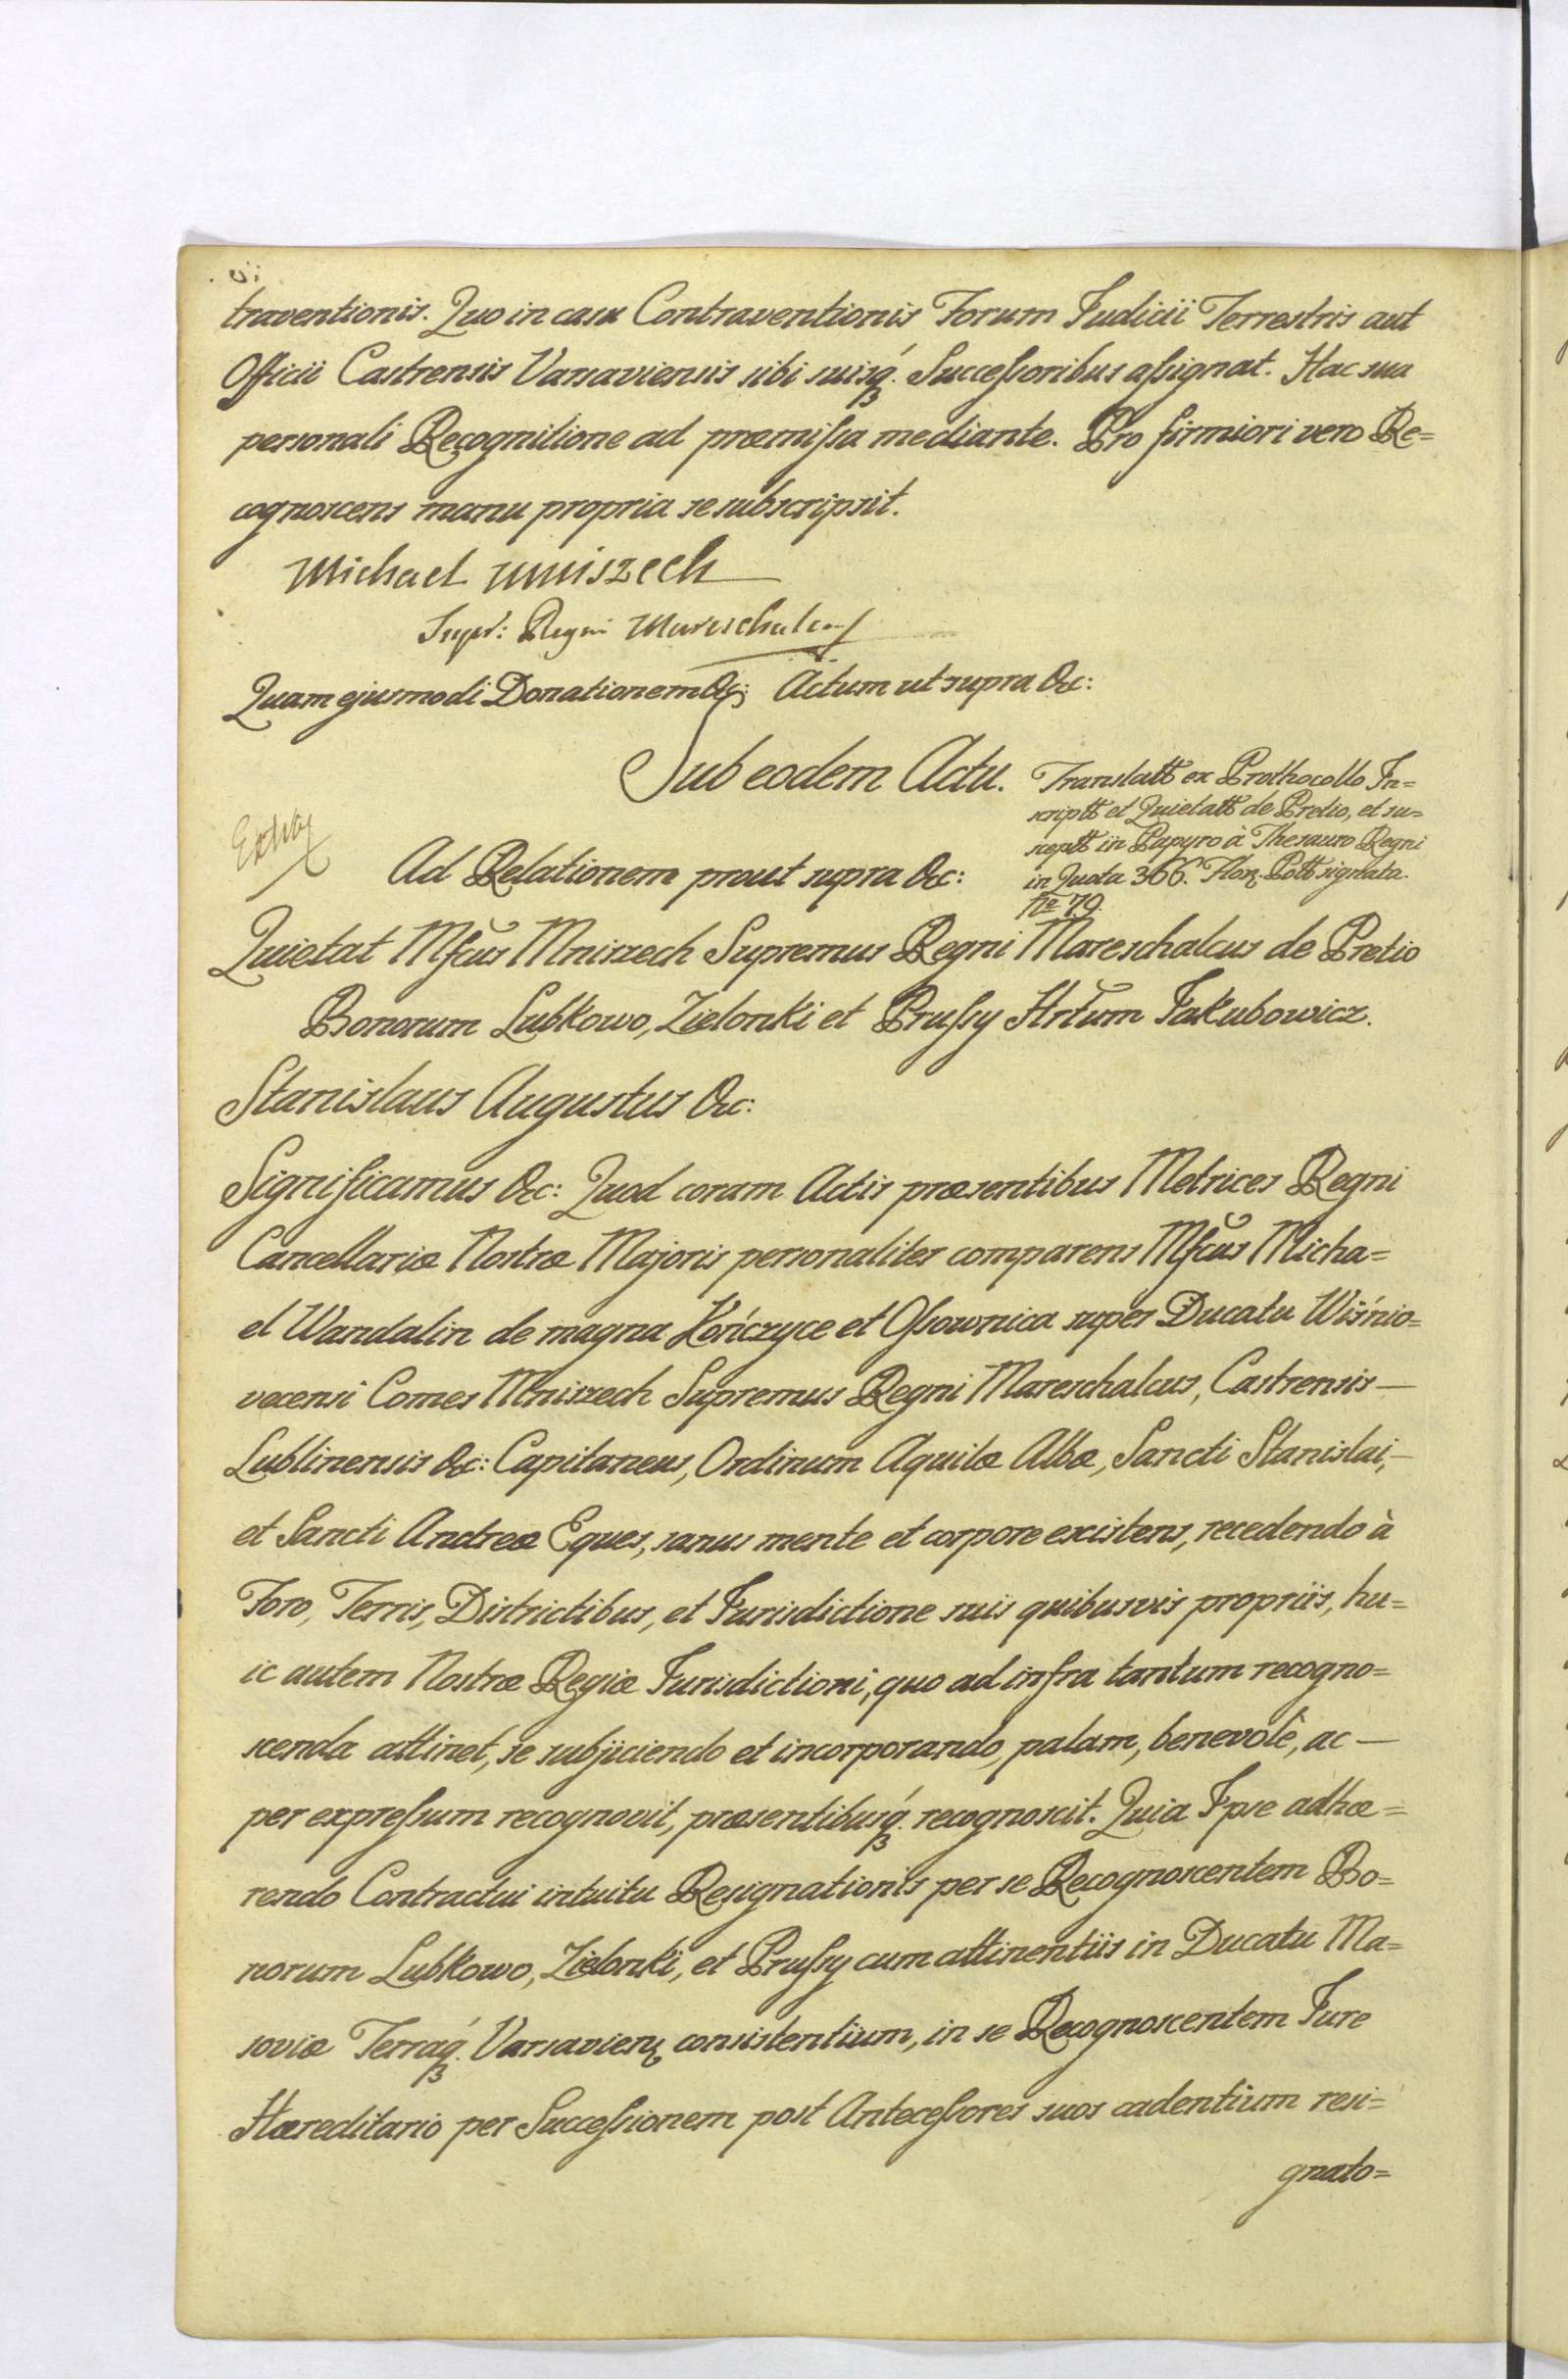 traventionis. Quo in casu Contraventionis Forum Judicii Terrestris aut
Officii Castrensis Varsaviensis sibi suisq́ꝫ. Succeſsoribus aſsignat. Hac sua
personali Recognitione ad præmiſsa mediante. Pro firmiori vero Re=
cognoscens manu propria se subscripsit.
Michael Mniszech
Supr: Regni Mareschalcus
Quam ejusmodi Donationem &c: Actum ut supra &c:
Sub eodem Actu.
Translatt ex Prothocollo In=
scriptt et Quietatt de Pretio, et su=
sceptt in Papyro à Thesauro Regni
in Quota 366. Flor. Pott signata.
No 79.
Ad Relationem prout supra &c:
Quietat Mfcus Mniszech Supremus Regni Mareschalcus de Pretio
Bonorum Lubkowo, Zielonki et Pruſsy Hrtum Jakubowicz.
Stanislaus Augustus &c:
Significamus &c: Quod coram Actis præsentibus Metrices Regni
Cancellariæ Nostræ Majoris personaliter comparens Mfcus Micha=
el Wandalin de magna Kończyce et Oſsownica super Ducatu Wiśnio=
vecensi Comes Mniszech Supremus Regni Mareschalcus, Castrensis —
Lublinensis &c: Capitaneus, Ordinum Aquilæ Albæ, Sancti Stanislai, —
et Sancti Andreæ Eques, sanus mente et corpore existens, recedendo à
Foro, Terris, Districtibus, et Jurisdictione suis quibusvis propriis, hu=
ic autem Nostræ Regiæ Jurisdictioni, quo ad infra tantum recogno=
scenda attinet, se subjiciendo et incorporando, palam, benevolè, ac —
per expreſsum recognovit, præsentibusq́ꝫ. recognoscit. Quia Ipse adhæ=
rendo Contractui intuitu Resignationis per se Recognoscentem Bo=
norum Lubkowo, Zielonki, et Pruſsy cum attinentiis in Ducatu Ma=
soviæ Terraq́ꝫ. Varsavien consistentium, in se Recognoscentem Jure
Hæreditario per Succeſsionem post Anteceſsores suos cadentium resi=
gnato=